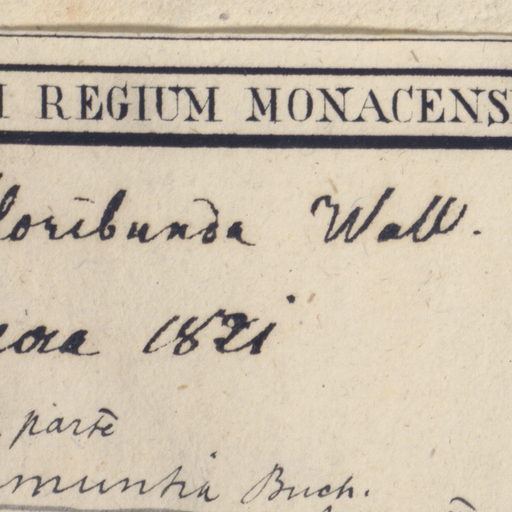 I REGIUM MONACENS
loribunda Wall.
1821
parte
Buch.